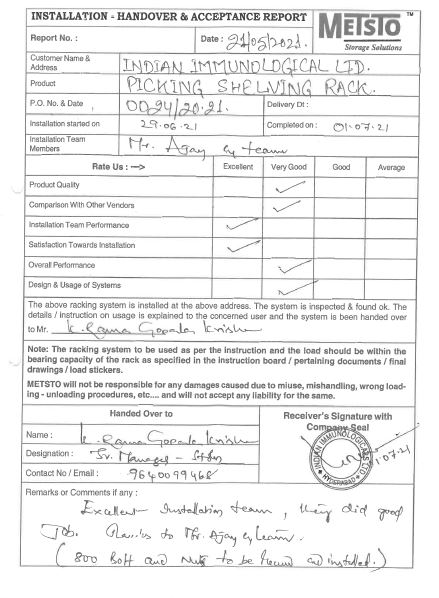 INSTALLATION - HANDOVER & ACCEPTANCE REPORT
METSTO TM
Storage Solutions
Report No. :
Date : 21/05/2021.
Customer Name & Address INDIAN IMMUNOLOGICAL LTD.
Product PICKING SHELVING RACK.
P.O. No. & Date 0094/20.21. Delivery Dt :
Installation started on 29.06.21 Completed on : 01.07.21
Installation Team Members Mr. Ajay & team
Rate Us : —> Excellent Very Good Good Average
Product Quality
Comparison With Other Vendors
Installation Team Performance
Satisfaction Towards Installation
Overall Performance
Design & Usage of Systems
The above racking system is installed at the above address. The system is inspected & found ok. The
details / instruction on usage is explained to the concerned user and the system is been handed over
to Mr. K. Rama Gopala Krishna
Note: The racking system to be used as per the instruction and the load should be within the
bearing capacity of the rack as specified in the instruction board / pertaining documents / final
drawings / load stickers.
METSTO will not be responsible for any damages caused due to miuse, mishandling, wrong load-
ing - unloading procedures, etc.... and will not accept any liability for the same.
Handed Over to
Receiver's Signature with
Company Seal
Name : K. Rama Gopala Krishna
Designation : Sr. Manager - Stores
Contact No / Email : 9640099468
INDIAN IMMUNOLOGICALS LTD
HYDERABAD
1.07.21
Remarks or Comments if any :
Excellent Installation team, they did good
Job. Thanks to Mr. Ajay & team.
(800 Bolt and Nuts to be and installed.)